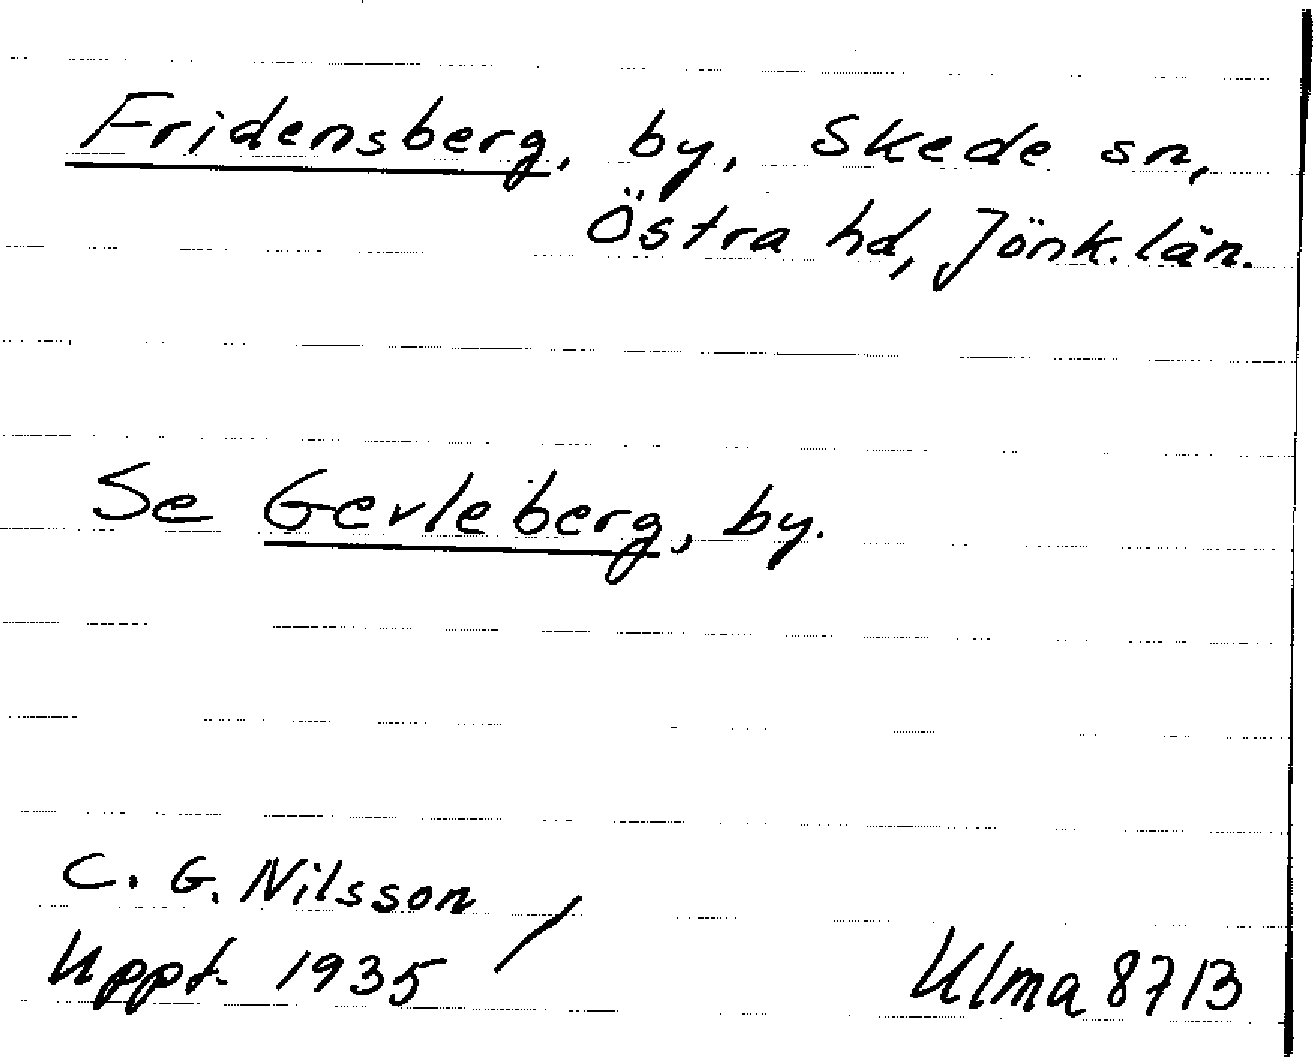 Fridensberg, by, Skede sn,
Östra hd, Jönk. län.
Se Gerleberg, by.
C. G. Nilsson
Uppt. 1935 /
Ulma 8713